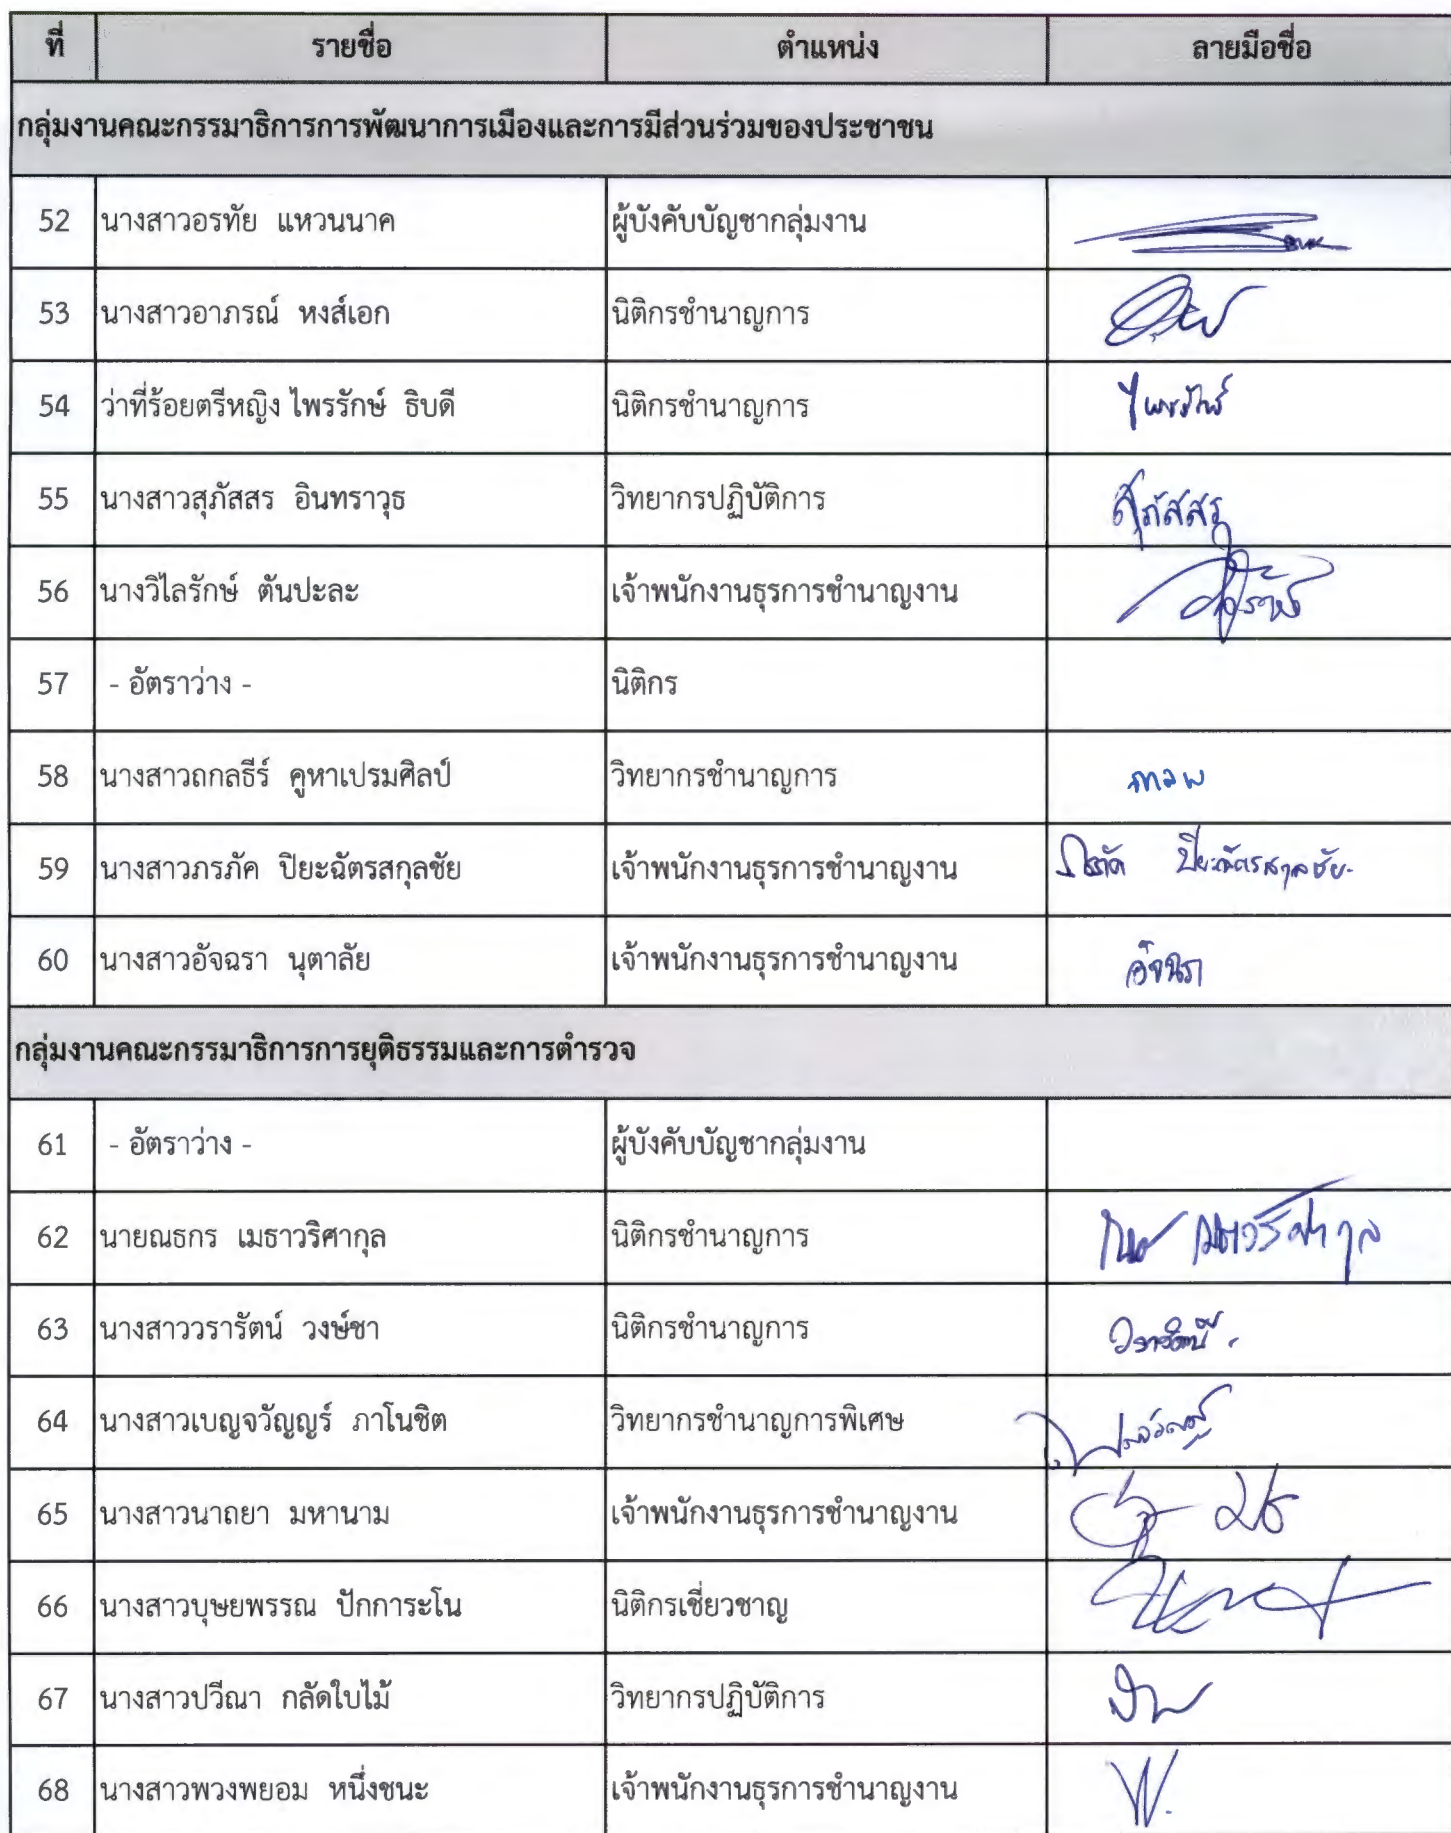 ที่ รายชื่อ ตำแหน่ง ลายมือชื่อ
กลุ่มงานคณะกรรมาธิการการพัฒนาการเมืองและการมีส่วนร่วมของประชาชน
52 นางสาวอรทัย แหวนนาค ผู้บังคับบัญชากลุ่มงาน
53 นางสาวอาภรณ์ หงส์เอก นิติกรชำนาญการ
54 ว่าที่ร้อยตรีหญิง ไพรรักษ์ ธิบดี นิติกรชำนาญการ ไพรรักษ์
55 นางสาวสุภัสสร อินทราวุธ วิทยากรปฏิบัติการ สุภัสสร
56 นางวิไลรักษ์ ตันปะละ เจ้าพนักงานธุรการชำนาญงาน
57 - อัตราว่าง - นิติกร
58 นางสาวถกลธีร์ คูหาเปรมศิลป์ วิทยากรชำนาญการ
59 นางสาวภรภัค ปิยะฉัตรสกุลชัย เจ้าพนักงานธุรการชำนาญงาน ภรภัค ปิยะฉัตรสกุลชัย
60 นางสาวอัจฉรา นุตาลัย เจ้าพนักงานธุรการชำนาญงาน อัจฉรา
กลุ่มงานคณะกรรมาธิการการยุติธรรมและการตำรวจ
61 - อัตราว่าง - ผู้บังคับบัญชากลุ่มงาน
62 นายณธกร เมธาวริศากุล นิติกรชำนาญการ
63 นางสาววรารัตน์ วงษ์ชา นิติกรชำนาญการ วรารัตน์
64 นางสาวเบญจวัญญร์ ภาโนชิต วิทยากรชำนาญการพิเศษ
65 นางสาวนาถยา มหานาม เจ้าพนักงานธุรการชำนาญงาน
66 นางสาวบุษยพรรณ ปักการะโน นิติกรเชี่ยวชาญ
67 นางสาวปวีณา กลัดใบไม้ วิทยากรปฏิบัติการ
68 นางสาวพวงพยอม หนึ่งชนะ เจ้าพนักงานธุรการชำนาญงาน